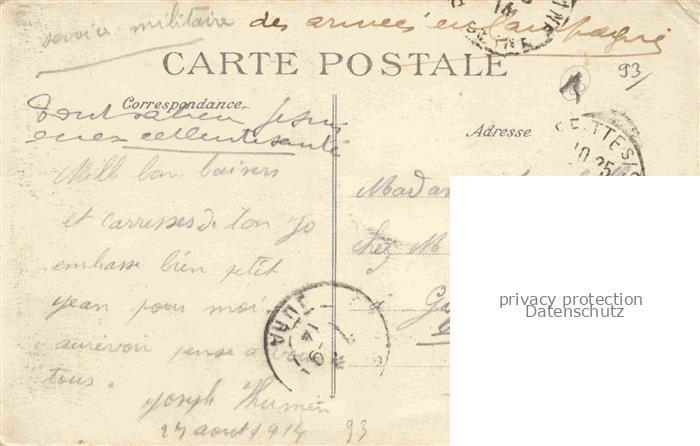 service militaire des armées en campagne
CARTE POSTALE
93
Correspondance
Adresse
Tout va bien Je suis
en excellente santé
Mille bons baisers
et carresses de ton Jo
embasse bien petit
jean pour moi
aurevoir pense a vous
tous
Joseph
27 aout 1914 93
Madame
chez M
a
JURA
14
10.25
privacy protection
Datenschutz